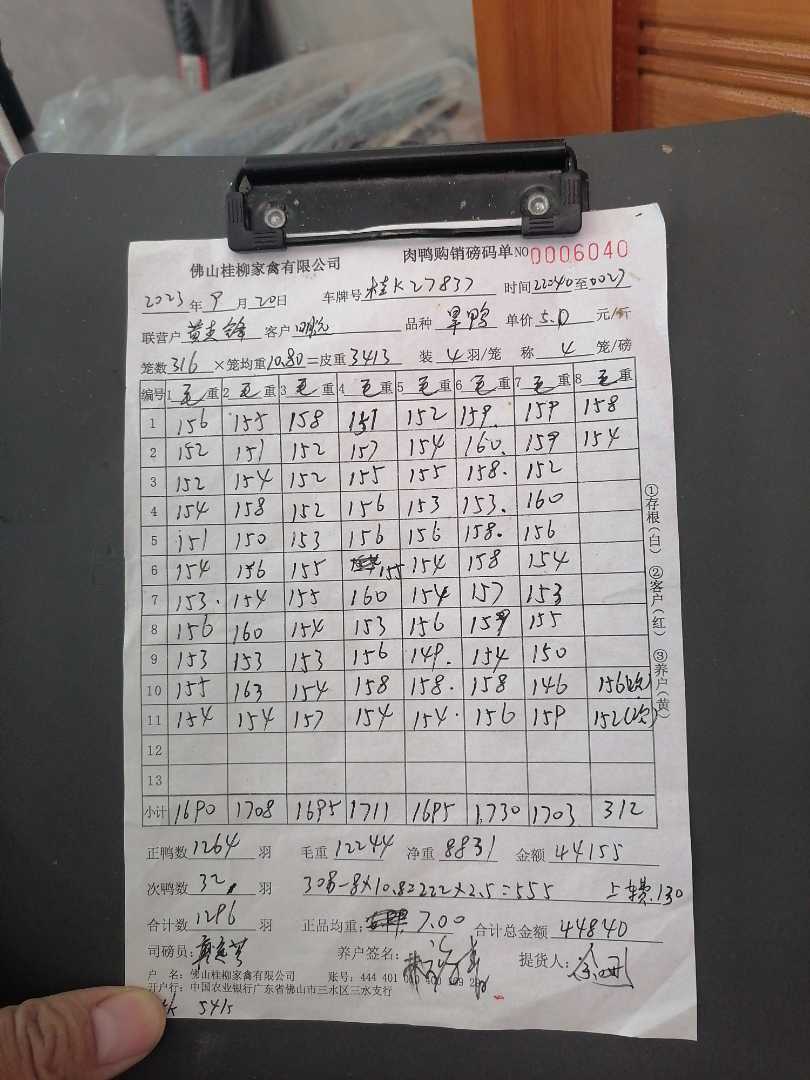 佛山桂柳家禽有限公司 肉鸭购销磅码单 NO 0006040
2023年9月20日 车牌号 桂K27837 时间 22:40 至 0027
联营户 客户 品种 旱鸭 单价 5.0 元/斤
笼数 316 ×笼均重 10.80 =皮重 3413 装 4 羽/笼 称 4 笼/磅
编号 1 毛重 2 毛重 3 毛重 4 毛重 5 毛重 6 毛重 7 毛重 8 毛重
1 156 155 158 151 152 159. 159 158
2 152 151 152 157 154 160. 159 154
3 152 154 152 155 155 158. 152
4 154 158 152 156 153 153. 160
5 151 150 153 156 156 158. 156
6 154 156 155 155 154 158 154
7 153. 154 155 160 154 157 153
8 156 160 154 153 156 159 155
9 153 153 153 156 149. 154 150
10 155 163 154 158 158. 158 146 156(次)
11 154 154 157 154 154. 156 159 152(次)
12
13
小计 1690 1708 1695 1711 1695 1730 1703 312
正鸭数 1264 羽 毛重 12244 净重 8831 金额 44155
次鸭数 32 羽 308-8×10.8=222×2.5=555 上车费.130
合计数 1296 羽 正品均重: 7.00 合计总金额 44840
司磅员: 养户签名: 提货人:
户 名: 佛山桂柳家禽有限公司 账号: 444 401
开户行: 中国农业银行广东省佛山市三水区三水支行
5415
①存根(白) ②客户(红) ③养户(黄)